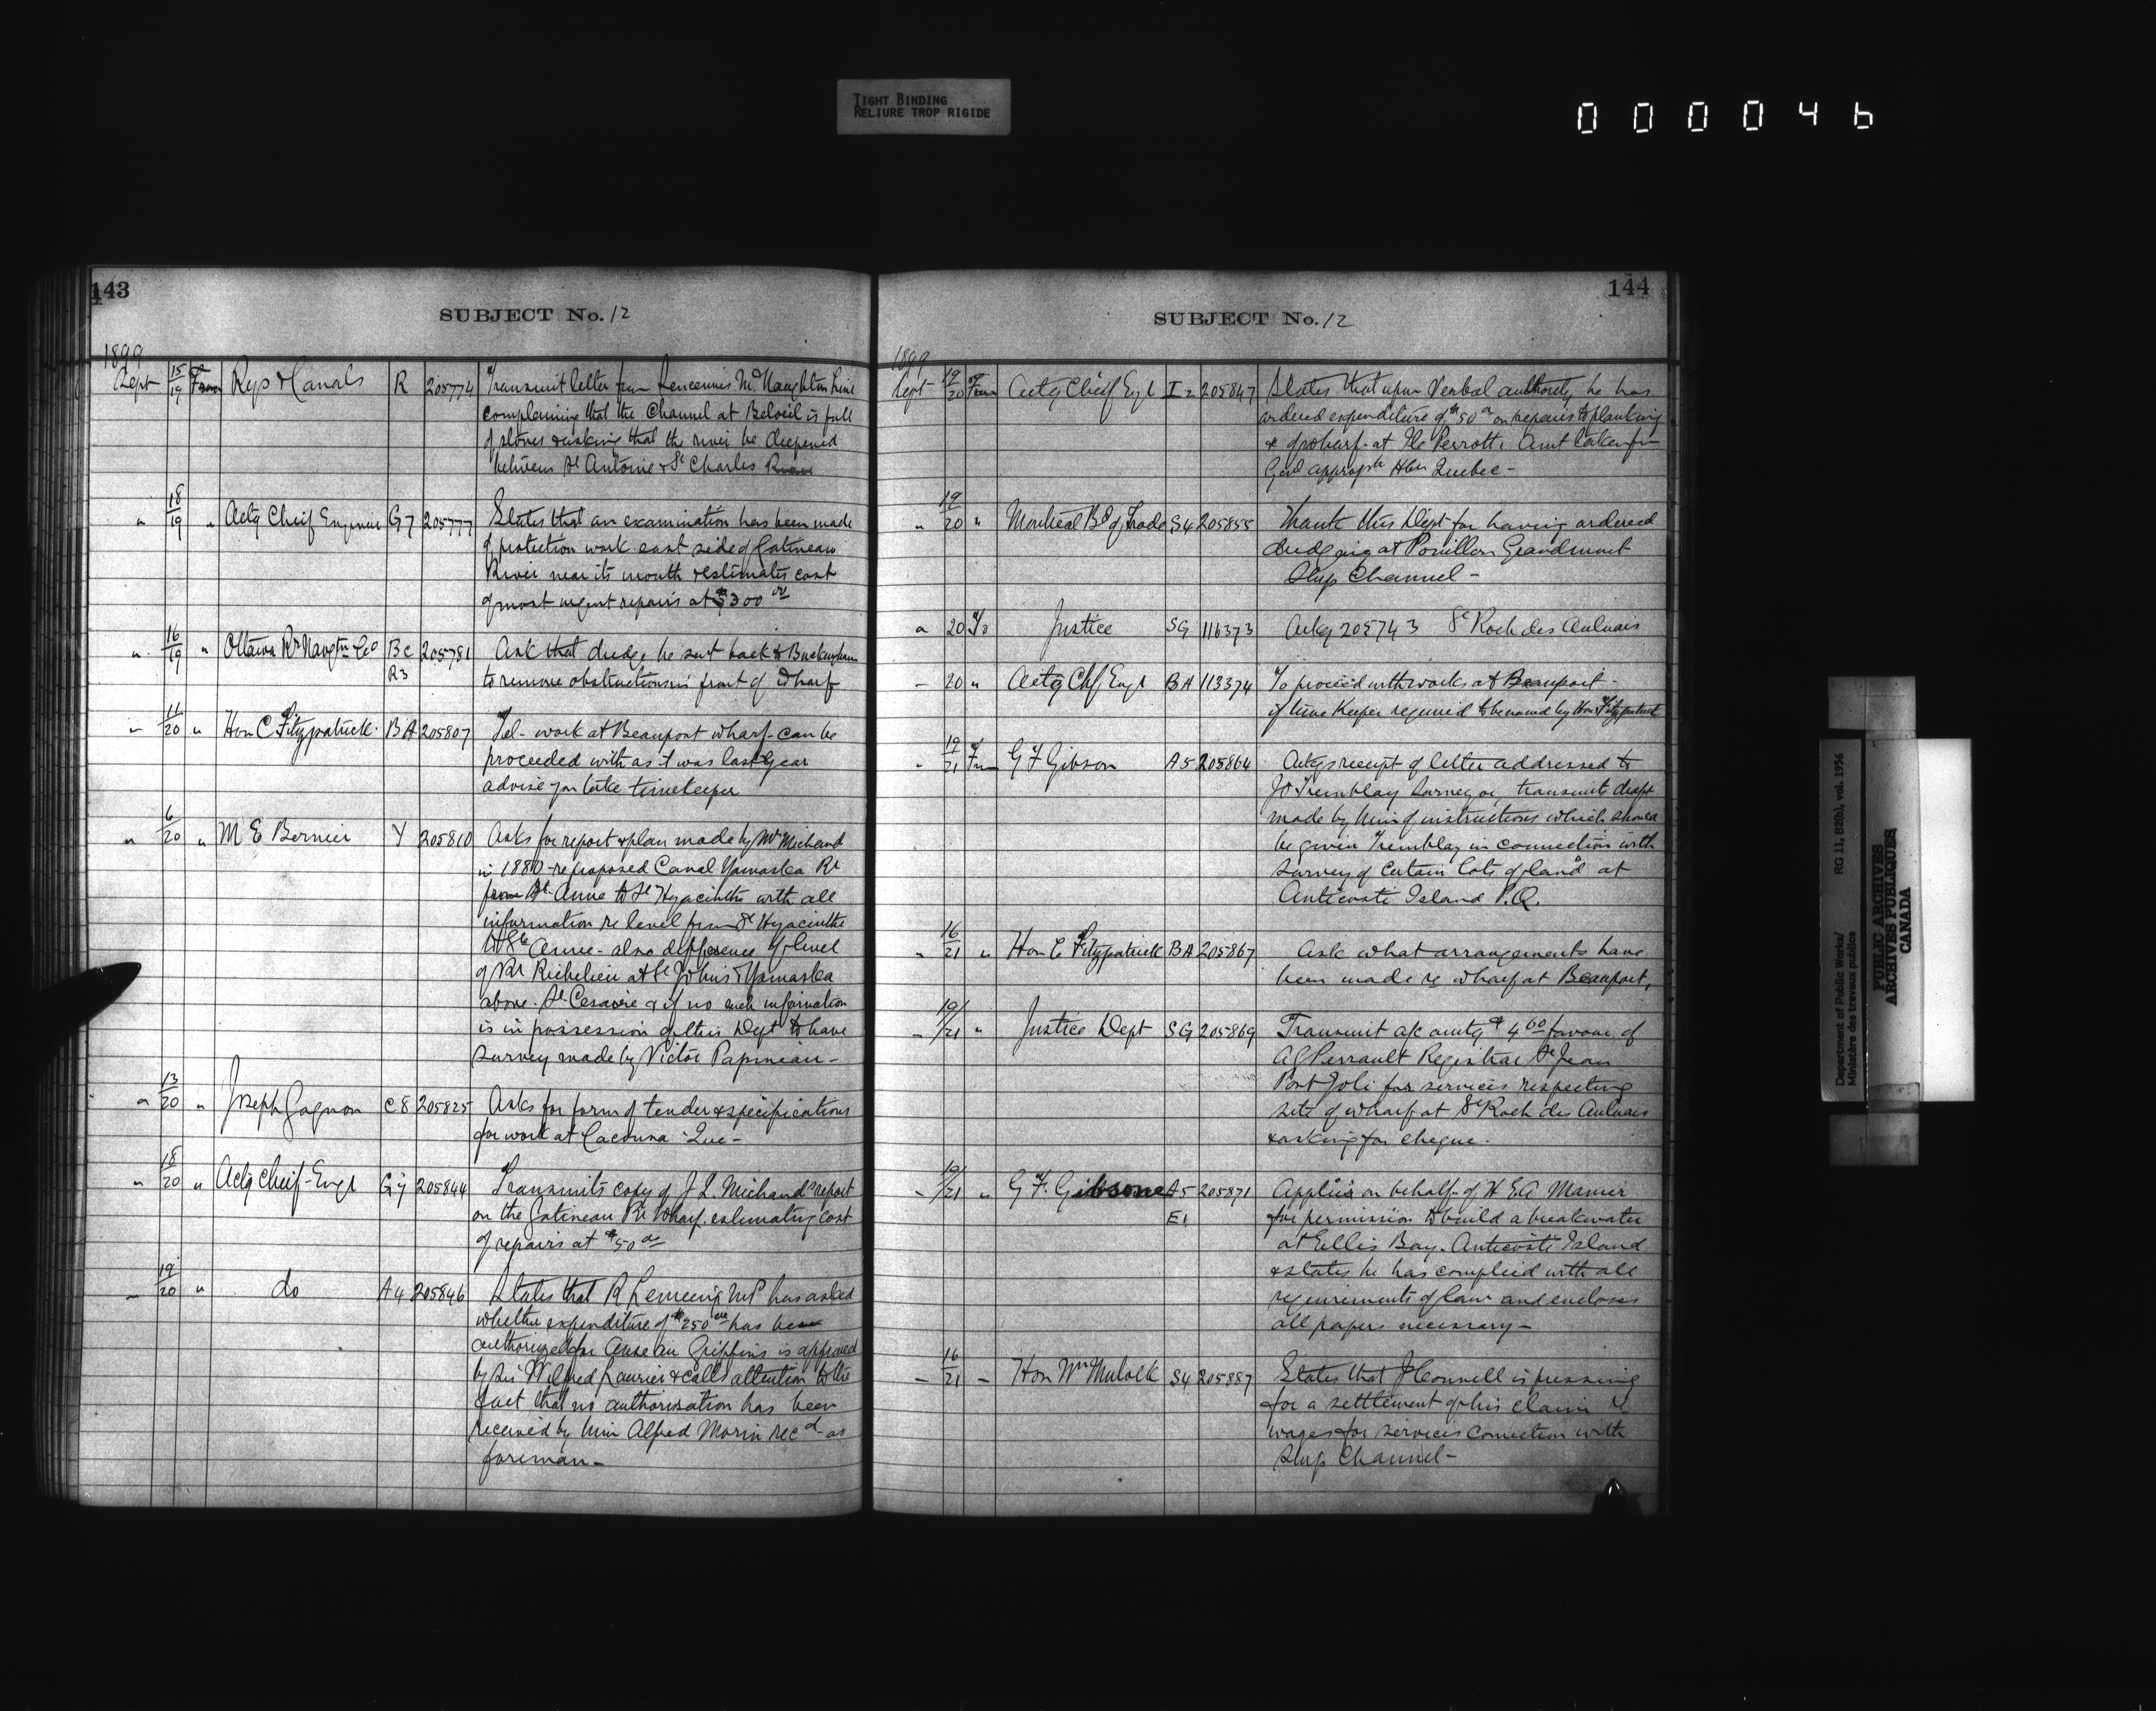 TIGHT BINDING
RELIURE TROP RIGIDE
000046
143
SUBJECT No. 12
1899
Sept 15/19 From Rys & Canals R 205774 Transmit letter from McNaughton Line
complaining that the Channel at Beloeil is full
of stones & asking that the river be deepened
between St Antoine & St Charles
" 18/19 " Actg Cheif Engineer G7 205777 States that an examination has been made
of protection work east side of Gatineau
River near its mouth & estimates cost
of most urgent repairs at $300 00
" 16/19 " Ottawa Rr Navgtn Co Bc 205781 Ask that dredge be sent back to Buckingham
R3 to remove obstructions in front of wharf
" 11/20 " Hon C Fitzpatrick BA 205807 Tel- work at Beauport wharf can be
proceeded with as it was last year
advise you take timekeeper
" 6/20 " M E Bernier Y 205810 Asks for report & plan made by Mr Michaud
in 1880 - re proposed Canal Yamaska Rr
from St. Anne to St Hyacinthe with all
information re level from St Hyacinthe
to Ste Anne - also difference of level
of Rr Richelieu at St Johns & Yamaska
above St Cesaire & if no such information
is in possession of this Dept to have
survey made by Victor Papineau -
" 13/20 " Joseph Gagnon C8 205825 Asks for form of tender & specifications
for work at Cacouna Que -
" 18/20 " Actg Cheif Engr G7 205844 Transmits copy of J. L. Michaud's report
on the Gatineau Rr Wharf estimating cost
of repairs at $50 00
" 19/20 " do A4 205846 States that R Lemieux MP has asked
whether expenditure of $250 00 has been
authorized for Anse au Griffins is approved
by Sir Wilfred Laurier & calls attention to the
fact that no authorisation has been
received by him Alfred Morin recd as
foreman -
144
SUBJECT No. 12
1899
Sept 19/20 From Actg Chief Engr I2 205847 States that upon Verbal authority he has
ordered expenditure of $50 00 on repairs to planking
& of wharf at Ile Perrott. Amt taken fm
Genl appropn Hbrs Quebec -
" 19/20 " Montreal Bd of Trade S4 205855 Thank this Dept for having ordered
dredging at Pouillier Grandmont
Ship Channel -
" 20 To Justice SG 116373 Ackg 205743 St Roch des Aulnais
- 20 " Actg Chf Engr BA 113374 To proceed with works at Beauport -
if time Keeper required to be named by Hon Fitzpatrick
" 19/21 Frm G F Gibson A5 205864 Ackgs receipt of letter addressed to
Tremblay Surveyor transmits draft
made by him of instructions which should
be given Tremblay in connection with
survey of certain lots of land at
Anticosti Island P.Q.
" 16/21 " Hon C Fitzpatrick BA 205867 Ask what arrangements have
been made re wharf at Beauport,
- 19/21 " Justice Dept SG 205869 Transmit a/c amtg $4 60 favour of
A G Perrault Registrar St Jean
Port Joli for services respecting
site of wharf at St Roch des Aulnais
& asking for cheque.
- 19/21 " G F. Gibsone A5 205871 Applies on behalf of H E A Manier
E1 for permission to build a breakwater
at Ellis Bay. Anticosti Island
& states he has complied with all
requirements of law and encloses
all papers necessary -
- 16/21 - Hon Wm Mulock S4 205887 States that J Connell is pressing
for a settlement of his claim
wages for services connection with
Ship Channel -
Department of Public Works/ RG 11, B2(b), vol. 1956
Ministère des travaux publics
PUBLIC ARCHIVES
ARCHIVES PUBLIQUES
CANADA